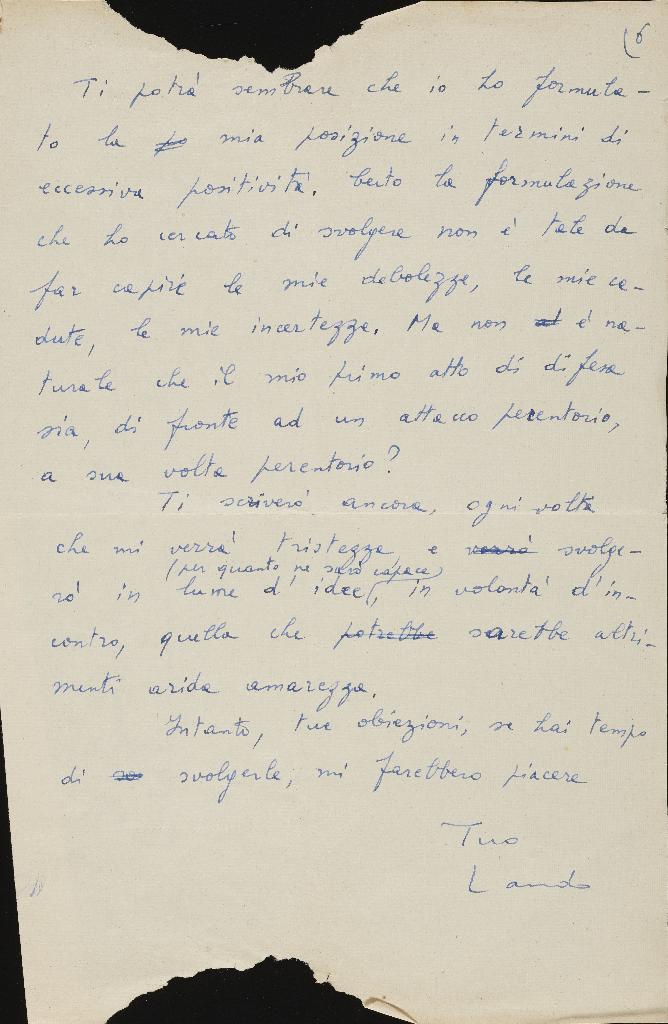 (6
Ti potrà sembrare che io ho formula-
to la po mia posizione in termini di
eccessiva positività. Certo la formulazione
che ho cercato di svolgere non è tale da
far capire le mie debolezze, le mie ca-
dute, le mie incertezze. Ma non è na-
turale che il mio primo atto di difesa
sia, di fronte ad un attacco perentorio,
a sua volta perentorio?
Ti scriverò ancora, ogni volta
che mi verrà tristezza e verrà svolge-
(per quanto ne sarò capace)
rò in lume d'idee, in volontà d'in-
contro, quella che potrebbe sarebbe altri-
menti arida amarezza.
Intanto, tue obiezioni, se hai tempo
di svolgerle, mi farebbero piacere
Tuo
Lando